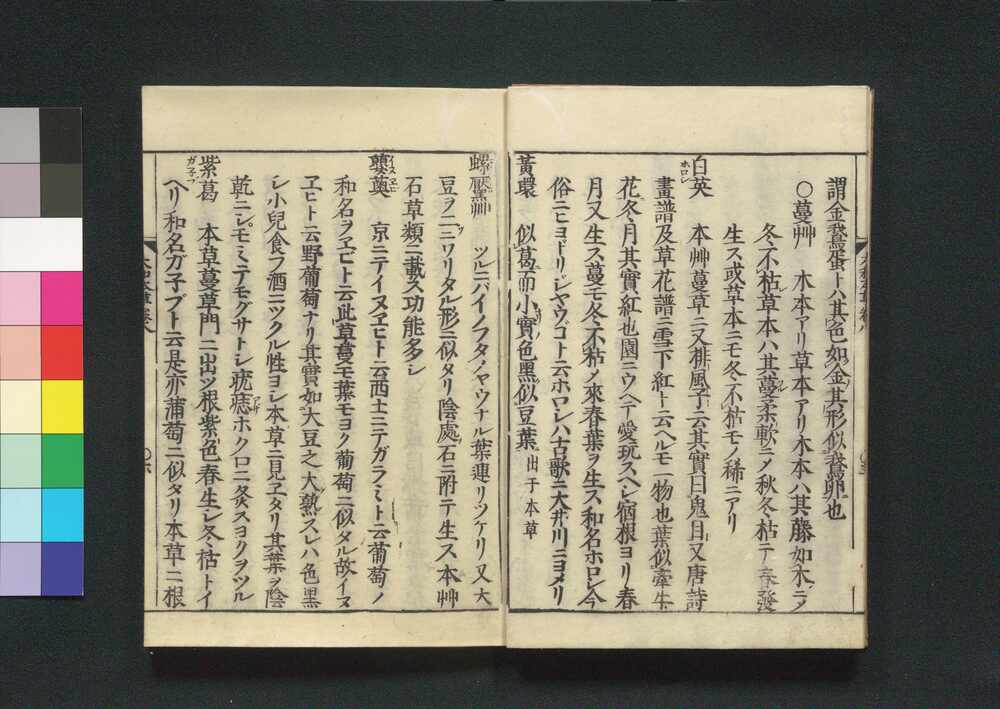 謂金鵞蛋ト八其色如金其形似鵞卵也
○蔓艸　木本アリ草本アリ木本ハ其藤如木ニメ
冬不枯草本ハ其蔓柔軟ニメ秋冬枯テ春發
生ス或草本ニモ冬不枯モノ稀ニアリ
白英　本艸蔓草ニ又排風子ト云其實曰鬼目又唐詩
ホロシ
畫譜及草花譜ニ雪下紅ト云ヘルモ一物也葉似牽牛
花冬月其實紅也園ニウヘテ愛玩スヘシ宿根ヨリ春
月又生ス蔓モ冬不枯メ來春葉ヲ生ス和名ホロシ今
俗ニヒヨドリシヤウコト云ホロシハ古歌ニ大井川ニヨメリ
黃環　似葛而小實色黑似豆葉　出于本草
螺黶艸　ツルニバイノフタノヤウナル葉連リツケリ又大
豆ヲニツニワリタル形ニ似タリ陰處石ニ附テ生ス本艸
石草類ニ載ス功能多シ
蘡薁　京ニテイヌヱヒト云西土ニテガラミト云葡萄ノ
イヌヱヒ
和名ヲヱビト云此草蔓モ葉モヨク葡萄ニ似タル故イヌ
ヱヒト云野葡萄ナリ其實如大豆之大熟スレハ色黑
シ小兒食フ酒ニツクル性ヨシ本草ニ見ヱタリ其葉ヲ陰
乾ニシモミテモグサトシ疣痣ホクロニ灸スヨクヲツル
アザ
紫葛　本草蔓草門ニ出ツ根紫色春生シ冬枯トイ
ガ子フ
ヘリ和名ガ子ブト云是亦蒲萄ニ似タリ本草ニ根